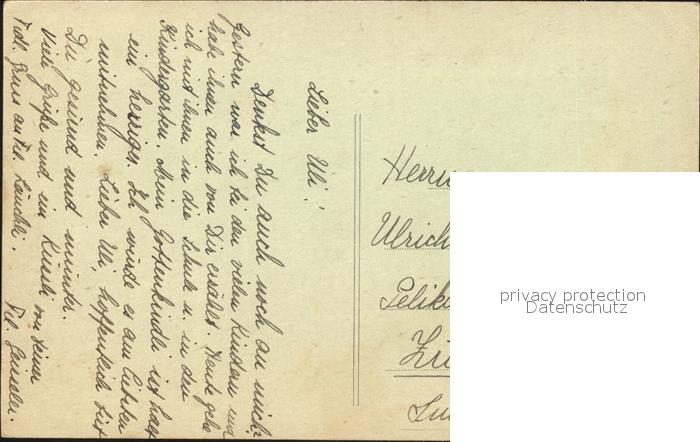 Lieber Uli!
Denkst Du auch noch an mich?
Gestern war ich bei den vielen Kindern und
habe ihnen auch von Dir erzählt. Heute gehe
ich mit ihnen in die Schule u. in den
Kindergarten. Mein Gottenkindli ist halt
ein herziges. Ich würde es am liebsten
mitnehmen. Lieber Uli, hoffentlich bist
Du gesund und munter.
Viele Grüsse und ein Küssli von Deiner
Frl. Gruss an Frl. Läuchli.
Herrn
Ulrich
Pelik
Zü
privacy protection
Datenschutz